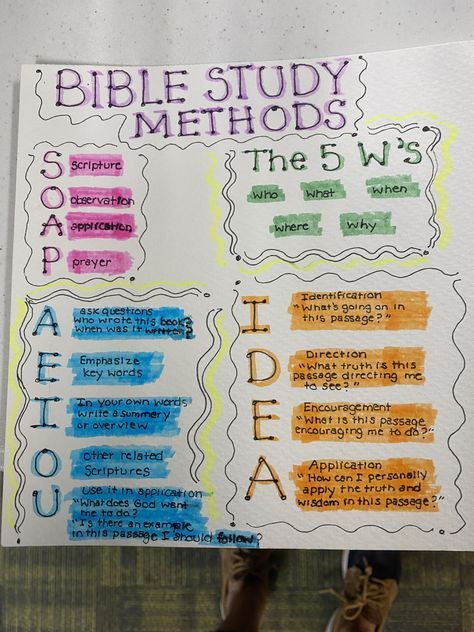 BIBLE STUDY
METHODS
S scripture
O observation
A application
P prayer
The 5 W's
who what when
where why
A ask questions
who wrote this book?
when was it written?
E Emphasize
key words
I In your own words
write a summery
or overview
O other related
Scriptures
U Use it in application
"What does God want
me to do?
"Is there an example
in this passage I should follow?
I Identification
"What's going on in
this passage?"
D Direction
"What truth is this
passage directing me
to see?"
E Encouragement
"What is this passage
encouraging me to do?"
A Application
"How can I personally
apply the truth and
wisdom in this passage?"